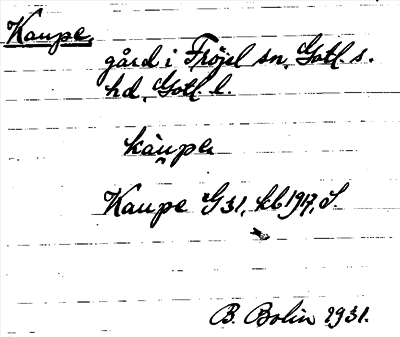 Kaupe,
gård i Fröjel sn, Gotl. s.
hd, Gotl. l.
kàu̯pe
Kaupe G31, kb 1917, S.
B. Bolin 1931.